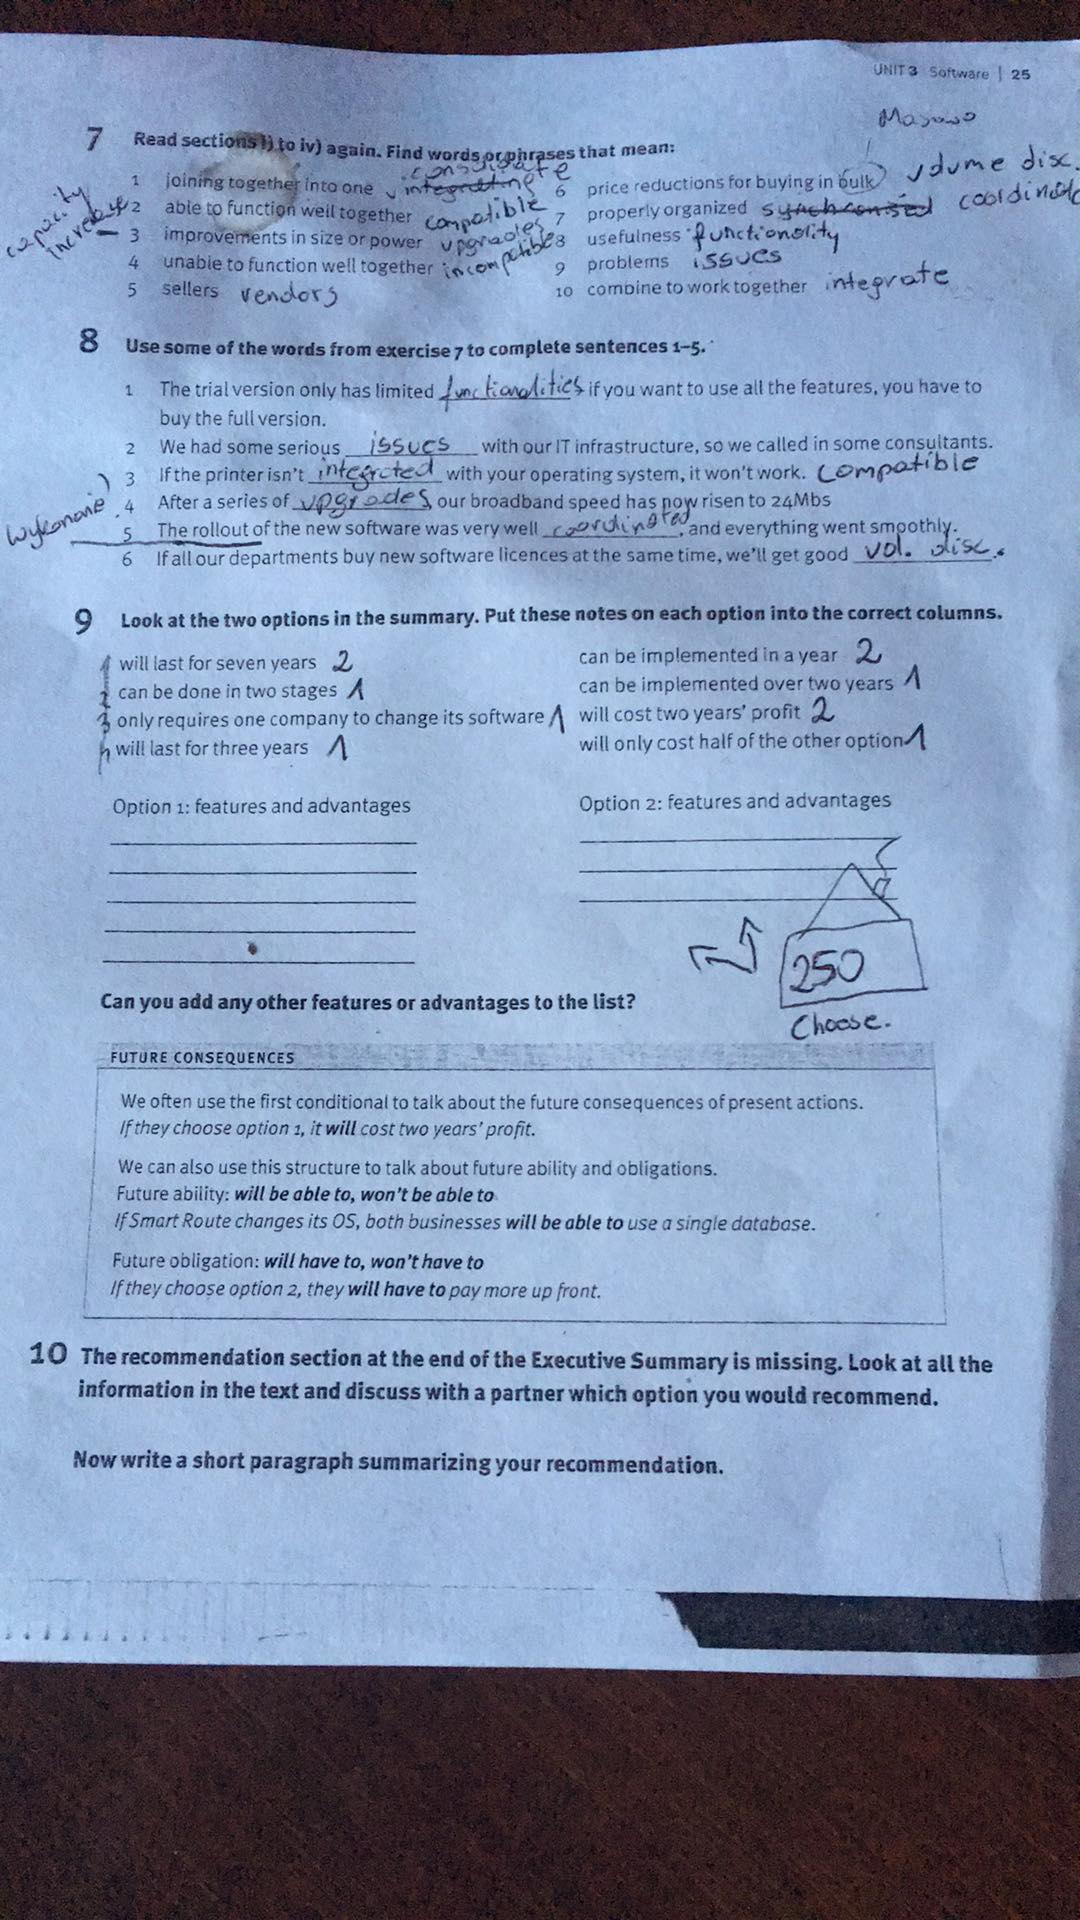 UNIT 3 Software | 25
Masowo
7 Read sections i) to iv) again. Find words or phrases that mean:
consolidate
1 joining together into one integrating
6 price reductions for buying in bulk volume disc.
capacity increase
2 able to function well together compatible
7 properly organized synchronised coordinated
3 improvements in size or power upgrades
8 usefulness functionality
4 unable to function well together incompatible
9 problems issues
5 sellers vendors
10 combine to work together integrate
8 Use some of the words from exercise 7 to complete sentences 1–5.
1 The trial version only has limited functionalities if you want to use all the features, you have to
buy the full version.
2 We had some serious issues with our IT infrastructure, so we called in some consultants.
3 If the printer isn't integrated with your operating system, it won't work. compatible
4 After a series of upgrades, our broadband speed has now risen to 24Mbs
wykonanie
5 The rollout of the new software was very well coordinated, and everything went smoothly.
6 If all our departments buy new software licences at the same time, we'll get good vol. disc.
9 Look at the two options in the summary. Put these notes on each option into the correct columns.
1 will last for seven years 2
can be implemented in a year 2
2 can be done in two stages 1
can be implemented over two years 1
3 only requires one company to change its software 1
will cost two years' profit 2
4 will last for three years 1
will only cost half of the other option 1
Option 1: features and advantages
Option 2: features and advantages
250
Choose.
Can you add any other features or advantages to the list?
FUTURE CONSEQUENCES
We often use the first conditional to talk about the future consequences of present actions.
If they choose option 1, it will cost two years' profit.
We can also use this structure to talk about future ability and obligations.
Future ability: will be able to, won't be able to
If Smart Route changes its OS, both businesses will be able to use a single database.
Future obligation: will have to, won't have to
If they choose option 2, they will have to pay more up front.
10 The recommendation section at the end of the Executive Summary is missing. Look at all the
information in the text and discuss with a partner which option you would recommend.
Now write a short paragraph summarizing your recommendation.